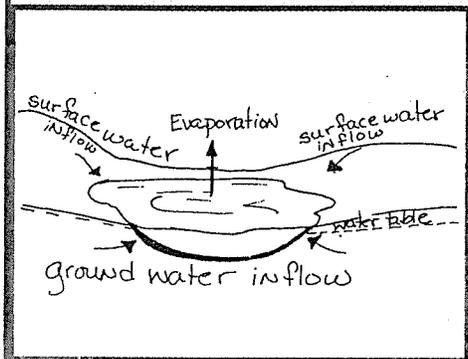 surface water
inflow
Evaporation
surface water
inflow
water table
ground water inflow